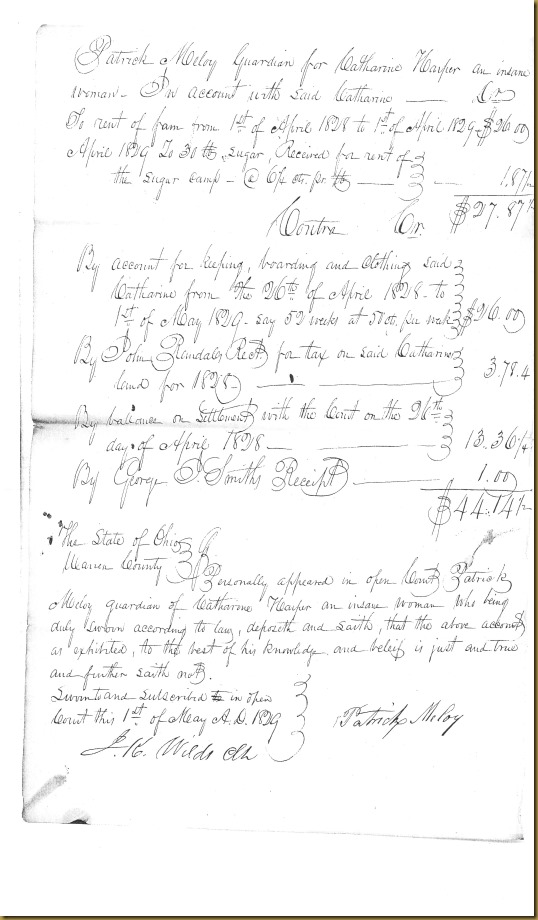 Patrick Meloy Guardian for Catharine Harper an insane
woman - In account with said Catharine — Dr
To rent of fam from 1st of April 1828 to 1st of April 1829 - $26.00
April 1829 To 30 lb sugar, Received for rent of
the sugar camp - @ 6¼ cts. pr lb — 1.87½
$27.87½
Contra Cr.
By account for keeping, boarding and clothing said
Catharine from the 26th of April 1828 - to
1st of May 1829 - say 52 weeks at 50 cts, per week $26.00
By John Rect for tax on said Catharine
land for 1828 — 3.78.4
By ballance on Settlement with the Court on the 26th
day of April 1828 — 13.36¼
By George Smiths Receipt — 1.00
$44.14½
The State of Ohio
Warren County Personally appeared in open Court Patrick
Meloy guardian of Catharine Harper an insane woman who being
duly sworn according to law, deposeth and saith, that the above account
as exhibited, to the best of his knowledge and beleif is just and true
and further saith not.
Sworn to and subscribed in open
Court this 1st of May A.D. 1829 Patrick Meloy
J. K. Wilds Clk